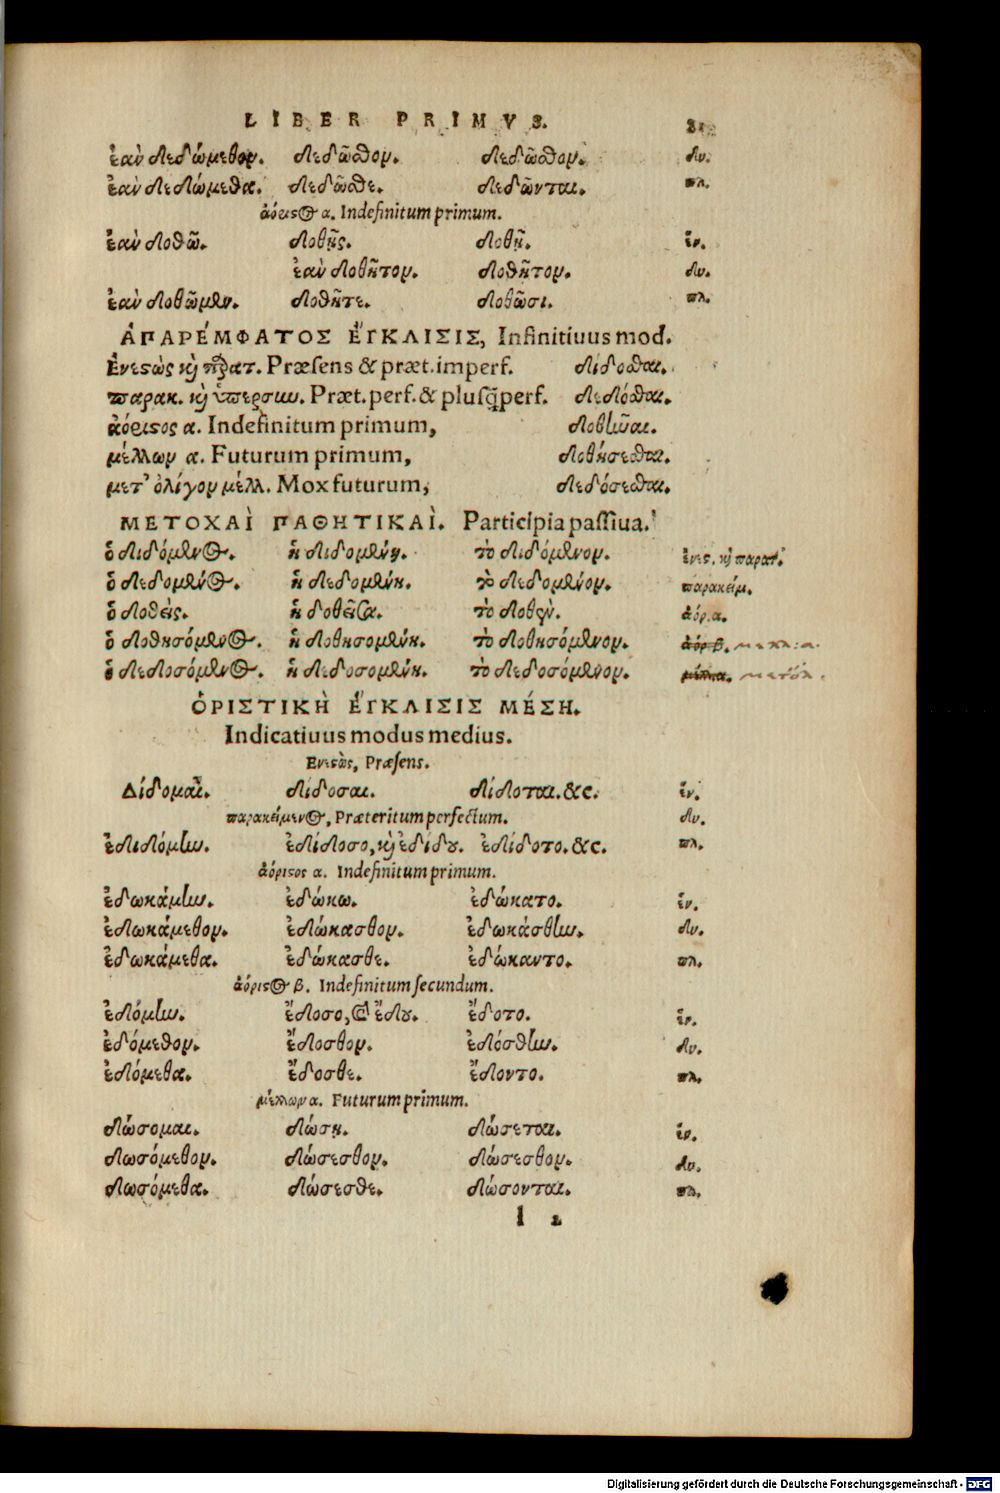 LIBER PRIMVS.
ἐὰν δεδώμεθον. δεδῶσθον. δεδῶσθον. δυ.
ἐὰν δεδώμεθα. δεδῶσθε. δεδῶνται. πλ.
ἀόριστος α. Indefinitum primum.
ἐὰν δοθῶ. δοθῇς. δοθῇ. ἑν.
ἐὰν δοθῆτον. δοθῆτον. δυ.
ἐὰν δοθῶμεν. δοθῆτε. δοθῶσι. πλ.
ἈΠΑΡΕΜΦΑΤΟΣ ἜΓΚΛΙΣΙΣ, Infinitiuus mod.
Ἐνεστὼς καὶ παρατ. Præsens & præt. imperf. δίδοσθαι.
παρακ. καὶ ὑπερσυν. Præt. perf. & plusq̃perf. δεδόσθαι.
ἀόριστος α. Indefinitum primum, δοθῆναι.
μέλλων α. Futurum primum, δοθήσεσθαι.
μετ' ὀλίγον μέλλ. Mox futurum, δεδόσεσθαι.
ΜΕΤΟΧΑῚ ΠΑΘΗΤΙΚΑῚ. Participia passiua.
ὁ διδόμενος. ἡ διδομένη. τὸ διδόμενον. ἐνεσ. καὶ παρατ.
ὁ δεδομένος. ἡ δεδομένη. τὸ δεδομένον. παρακείμ.
ὁ δοθείς. ἡ δοθεῖσα. τὸ δοθέν. ἀόρ. α.
ὁ δοθησόμενος. ἡ δοθησομένη. τὸ δοθησόμενον. ἀόρ. β. μελλ: α.
ὁ δεδοσόμενος. ἡ δεδοσομένη. τὸ δεδοσόμενον. μετ' ὀλ.
ὉΡΙΣΤΙΚῊ ἜΓΚΛΙΣΙΣ ΜΈΣΗ.
Indicatiuus modus medius.
Ενεστὼς, Præsens.
Δίδομαι. δίδοσαι. δίδοται. &c. ἑν.
παρακείμενος, Præteritum perfectum. δυ.
ἐδιδόμην. ἐδίδοσο, καὶ ἐδίδου. ἐδίδοτο. &c. πλ.
ἀόριστος α. Indefinitum primum.
ἐδωκάμην. ἐδώκω. ἐδώκατο. ἑν.
ἐδωκάμεθον. ἐδώκασθον. ἐδωκάσθην. δυ.
ἐδωκάμεθα. ἐδώκασθε. ἐδώκαντο. πλ.
ἀόριστος β. Indefinitum secundum.
ἐδόμην. ἔδοσο, & ἔδου. ἔδοτο. ἑν.
ἐδόμεθον. ἔδοσθον. ἐδόσθην. δυ.
ἐδόμεθα. ἔδοσθε. ἔδοντο. πλ.
μέλλων α. Futurum primum.
δώσομαι. δώσῃ. δώσεται. ἑν.
δωσόμεθον. δώσεσθον. δώσεσθον. δυ.
δωσόμεθα. δώσεσθε. δώσονται. πλ.
l 2
Digitalisierung gefördert durch die Deutsche Forschungsgemeinschaft - DFG